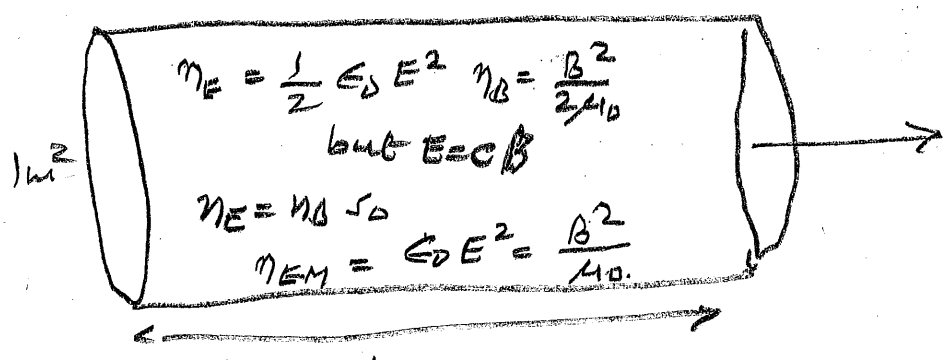 η_E = 1/2 ε₀ E² η_B = B²/2μ₀
but E=cB
1m²
η_E = η_B so
η_EM = ε₀ E² = B²/μ₀.